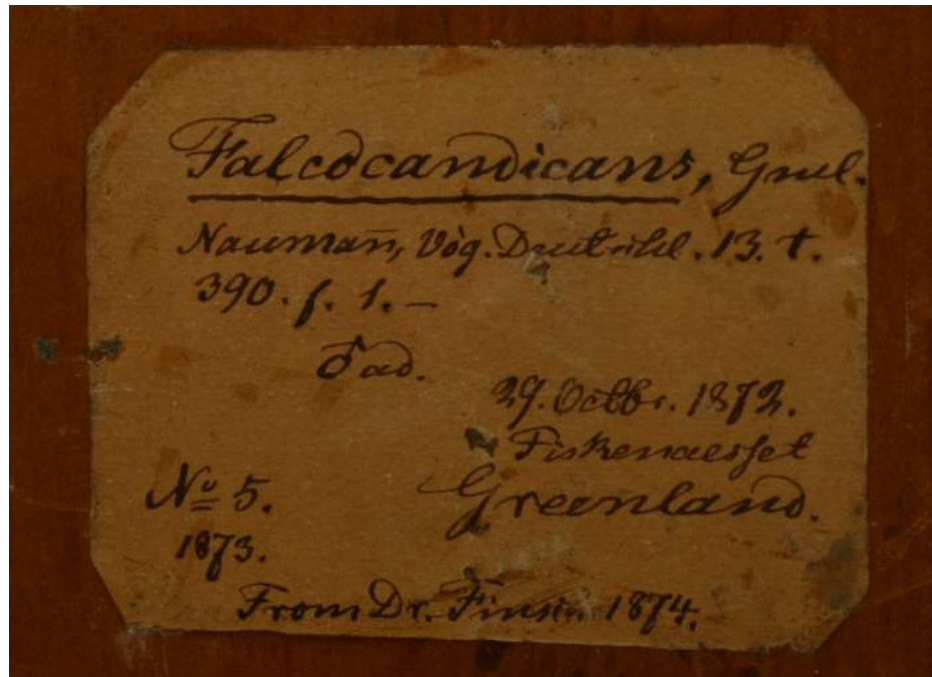 Falco candicans, Gmel.
Naumañ, Vög. Deutschl. 13. t.
390. f. 1. —
♂ ad.
29. Octbr. 1872.
Fiskenaesset
Greenland.
Nº 5.
1873.
From Dr. Finsch 1874.